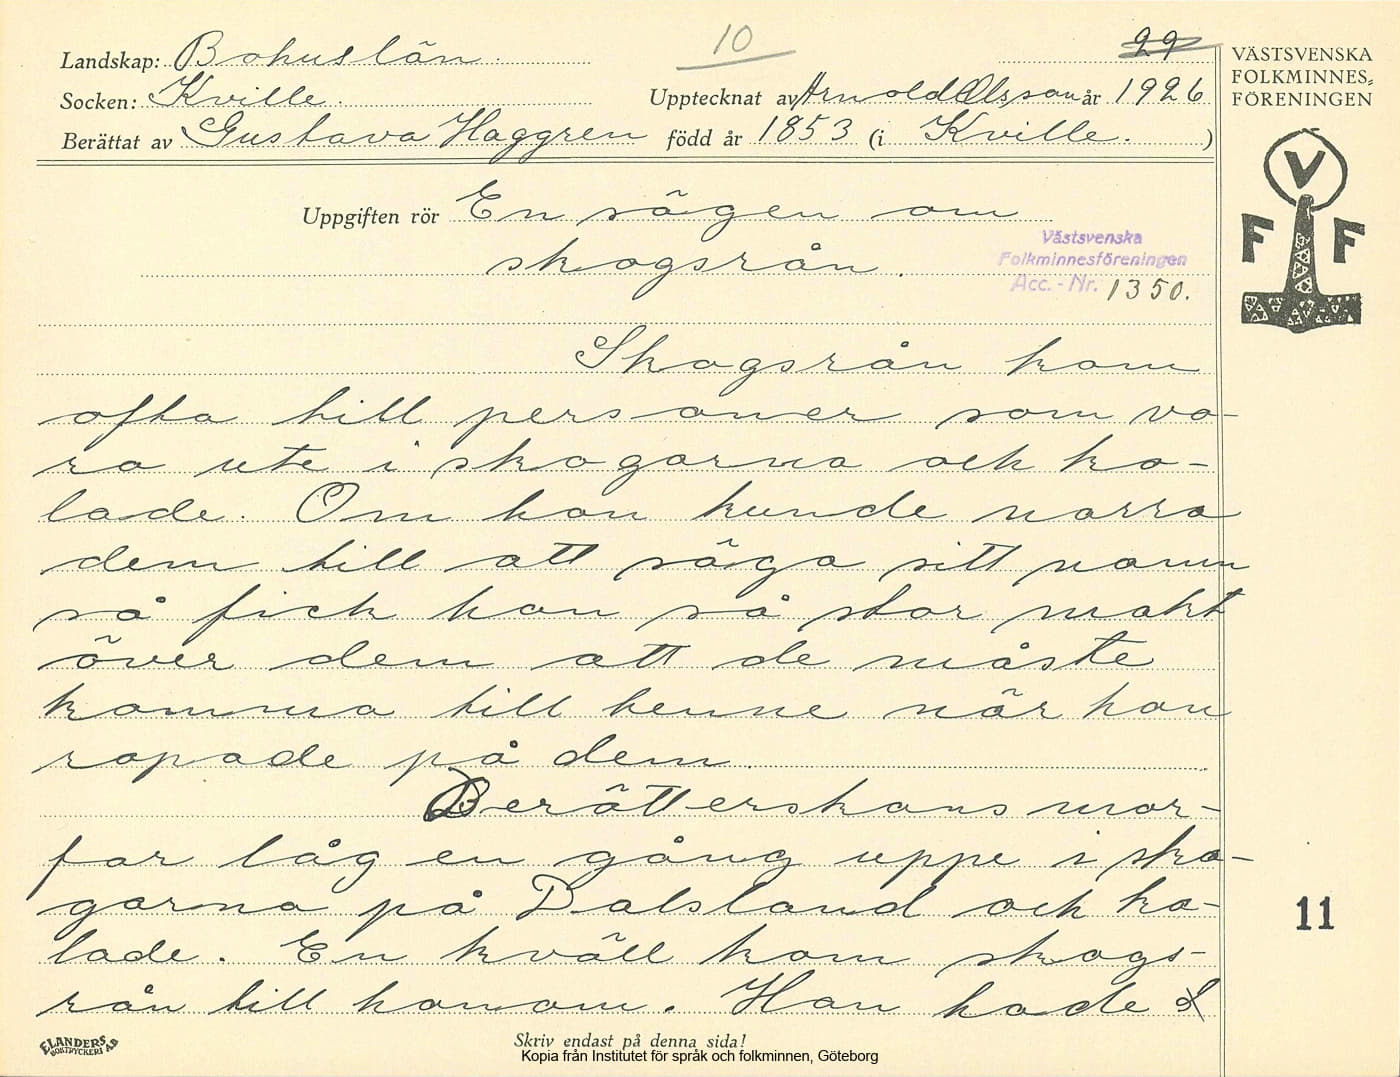 10
29
Landskap: Bohuslän.
Socken: Kville. Upptecknat av Arnold Olsson år 1926
Berättat av Gustava Haggren född år 1853 (i Kville. )
VÄSTSVENSKA
FOLKMINNES-
FÖRENINGEN
V
F F
Uppgiften rör En sägen om
skogsrån.
Västsvenska
Folkminnesföreningen
Acc. - Nr. 1350.
Skogsrån kom
ofta till personer som vo-
ro ute i skogarna och ko-
lade. Om hon kunde narra
dem till att säga sitt namn
så fick hon så stor makt
över dem att de måste
komma till henne när hon
ropade på dem.
Berätterskans mor-
far låg en gång uppe i sko-
garna på Dalsland och ko-
lade. En kväll kom skogs-
rån till honom. Han hade
11
ELANDERS
BOKTRYCKERI AB
Skriv endast på denna sida!
Kopia från Institutet för språk och folkminnen, Göteborg